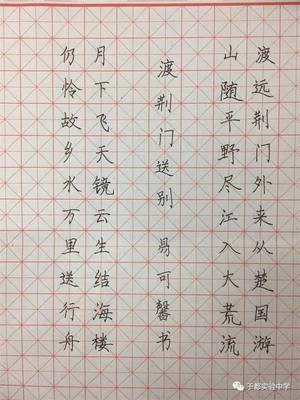 渡远荆门外来从楚国游
山随平野尽江入大荒流
渡荆门送别 易可馨书
月下飞天镜云生结海楼
仍怜故乡水万里送行舟
于都实验中学